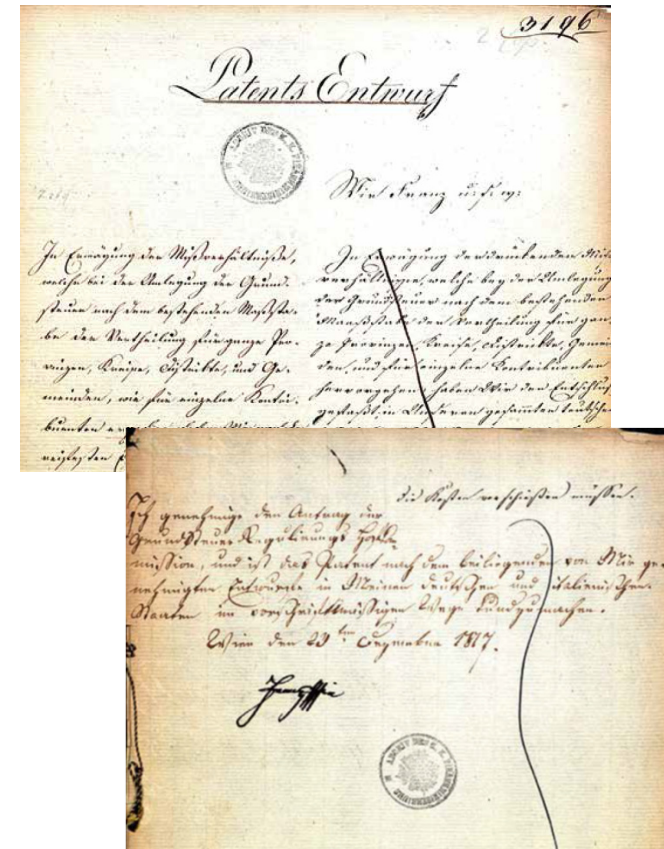 3196
Patents Entwurf
Wir Franz u: s: w:
In Erwägung der Mißverhältniße,
welche bei der Umlegung der Grund-
steuer nach dem bestehenden Maßsta-
be der Vertheilung für ganze Pro-
vinzen, Kreise, Distrikte, und Ge-
meinden, wie für einzelne Contri-
buenten
In Erwägung der drückenden Miß-
verhältniße, welche bey der Umlegung
der Grundsteuer nach dem bestehenden
Maaßstabe der Vertheilung für gan-
ze Provinzen, Kreise, Distrikte, Gemein-
den, und für einzelne Contribuenten
hervorgehen, haben Wir den Entschluß
gefaßt, in Unseren gesammten deutschen
die Kosten vorschießen müssen.
Ich genehmige den Antrag der
Grundsteuer Regulierungs Hofkom-
mission, und ist das Patent nach dem beiliegenden von Mir ge-
nehmigten Entwurfe in Meinen deutschen und italienischen
Staaten im vorschriftmässigen Wege kundzumachen.
Wien den 23ten Dezember 1817.
Franz